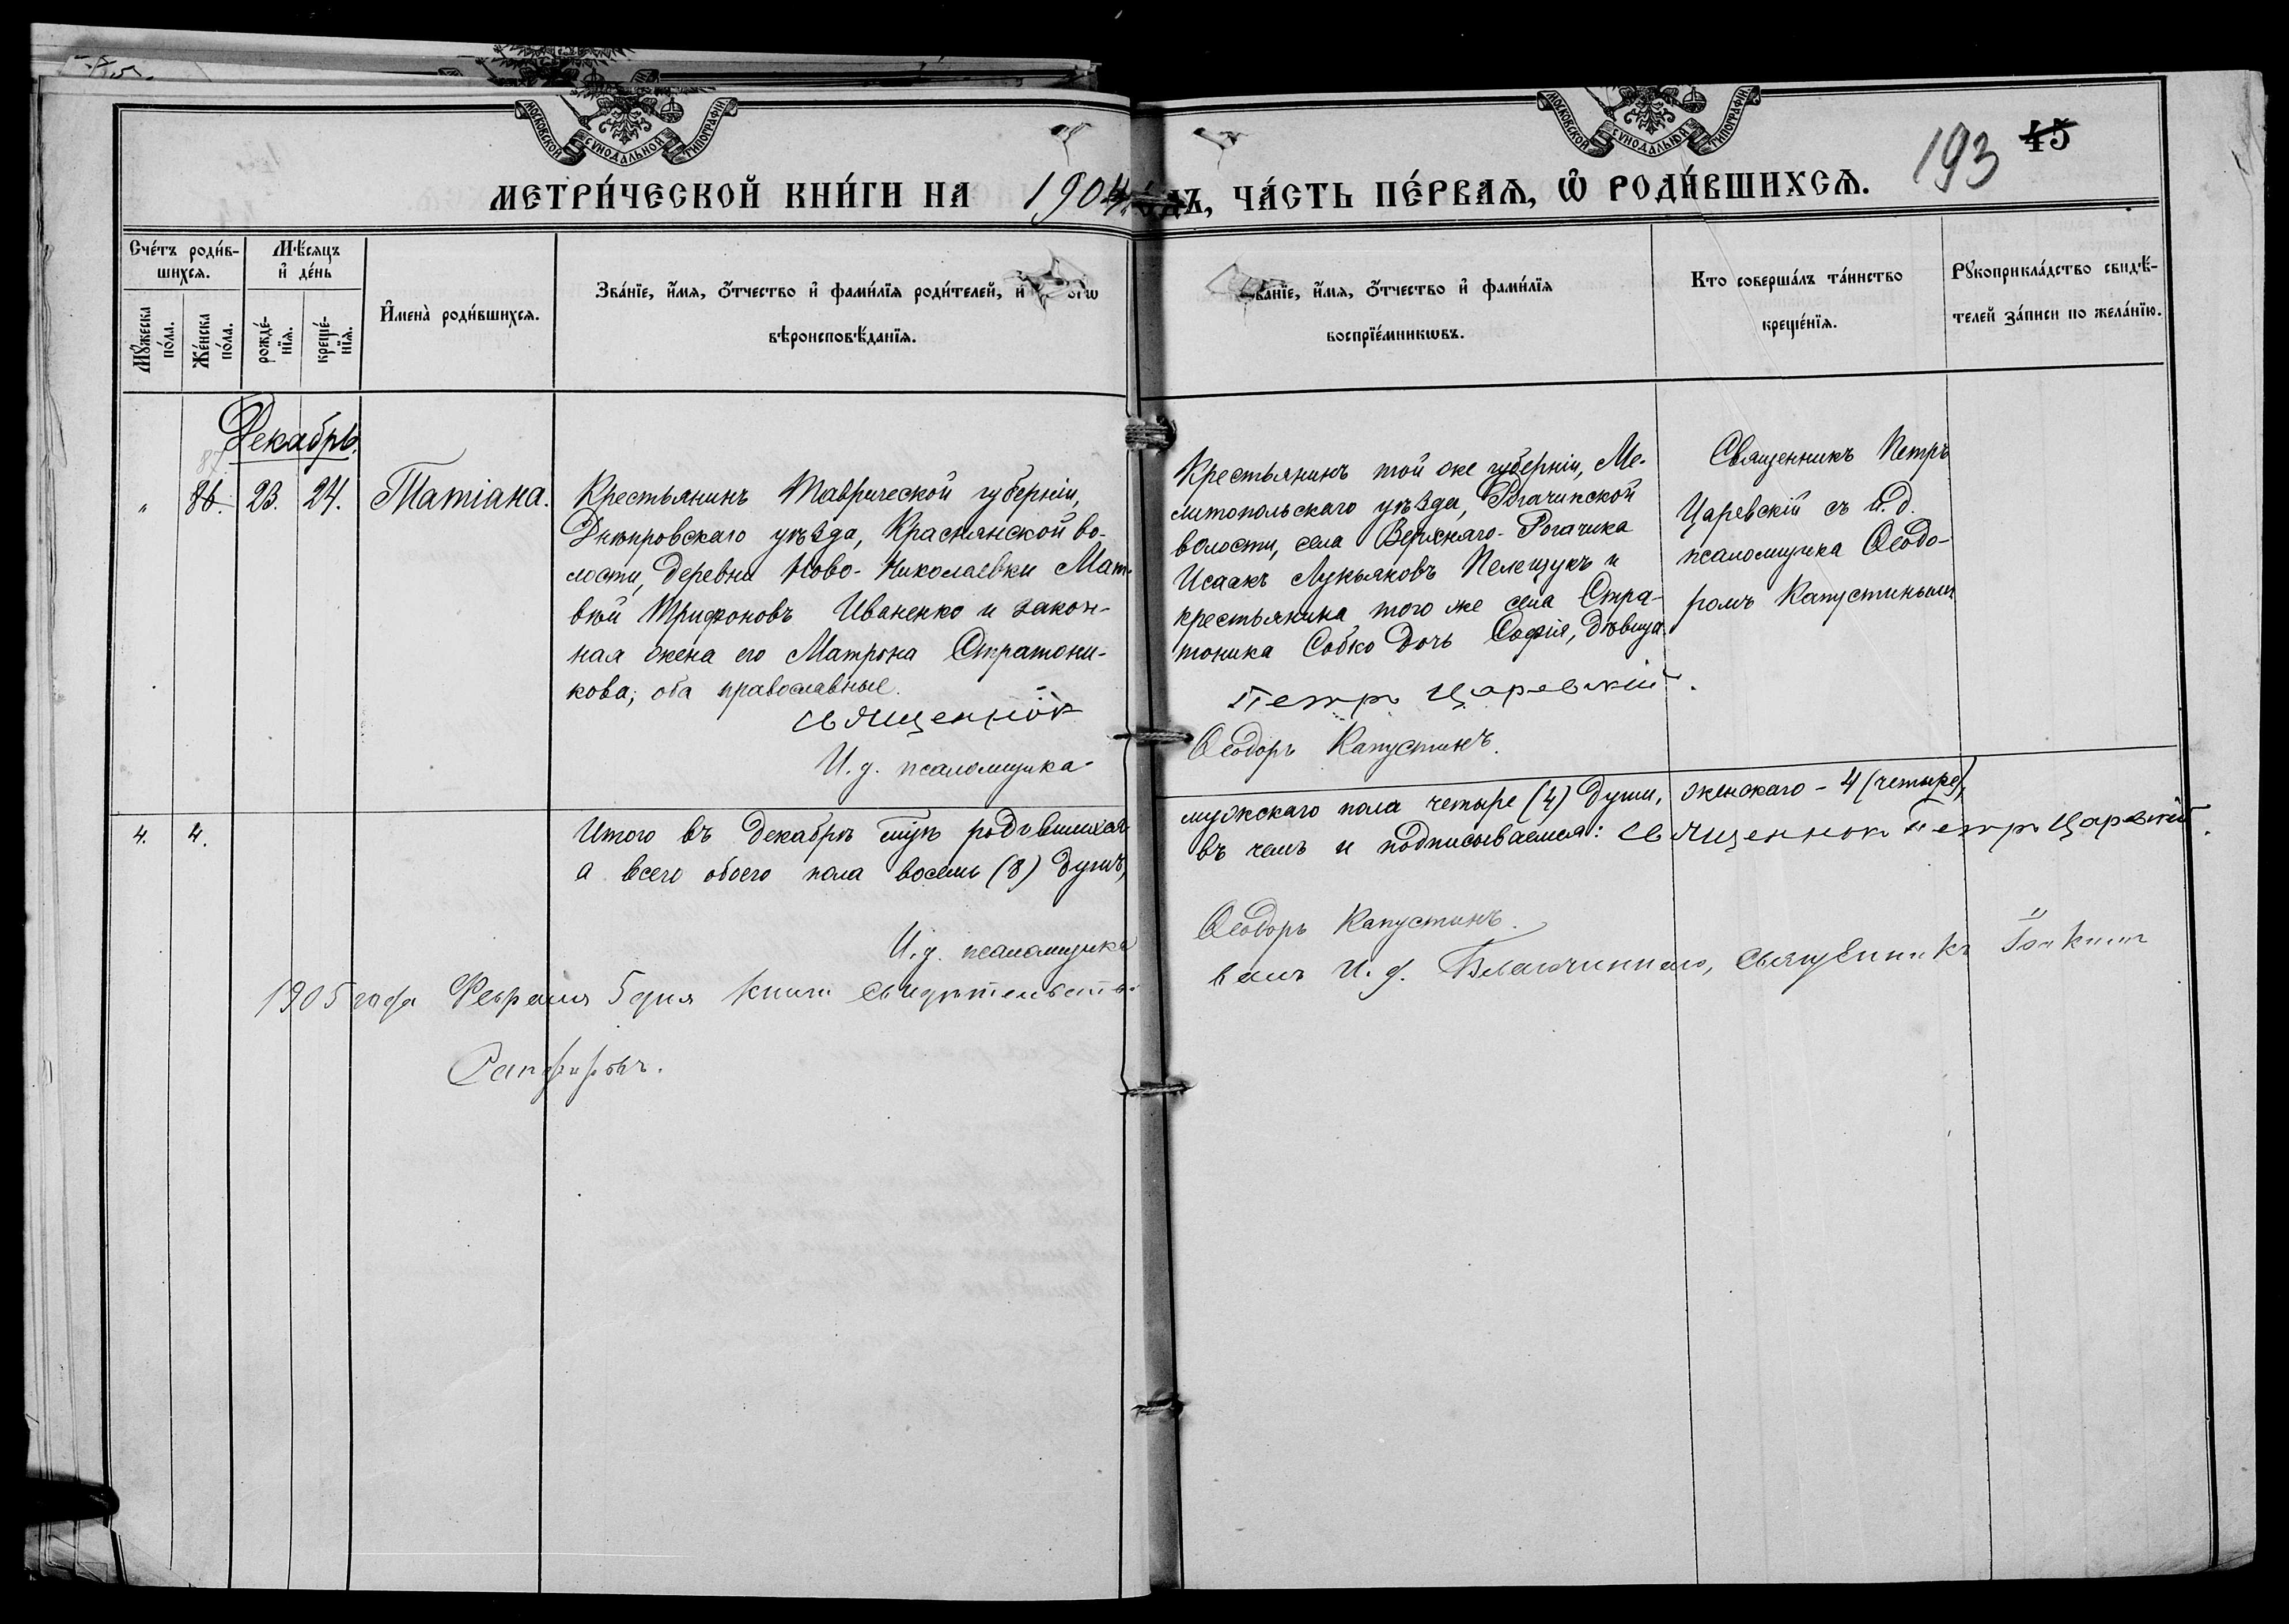 МОСКОВСКОЙ СѴНОДАЛЬНОЙ ТИПОГРАФІИ
МОСКОВСКОЙ СѴНОДАЛЬНОЙ ТИПОГРАФІИ
193 45
МЕТРИ́ЧЕСКОЙ КНИ́ГИ НА 1904 дъ, ЧА́СТЬ ПЕ́РВАЯ, Ѡ РОДИ́ВШИХСЯ.
Сче́тъ роди́в-
шихся.
Мꙋ́жеска
по́ла.
Же́нска
по́ла.
Мѣ́сяцъ
и де́нь
рожде́-
нїя.
креще́-
нїя.
Имена̀ роди́вшихся.
Зва́нїе, и́мя, о́тчество и фами́лїя роди́телей, и
вѣроисповѣ́данїя.
ва́нїе, и́мя, о́тчество и фами́лїя
воспрїе́мникѡвъ.
Кто соверша́лъ та́инство
креще́нїя.
Рꙋкоприкла́дство свидѣ́-
телей за́писи по жела́нїю.
Декабрь.
87
" 86. 23. 24. Татіана.
Крестьянинъ Таврической губерніи,
Днѣпровскаго уѣзда, Краснянской во-
лости, деревни Ново-Николаевки Мат-
вѣй Трифоновъ Иваненко и закон-
ная жена его Матрона Стратони-
кова; оба православные.
Священник
И. д. псаломщика
Крестьянинъ той же губерніи, Ме-
литопольскаго уѣзда, Рогачикской
волости, села Верхняго-Рогачика
Исаакъ Лукьяновъ Пелещукъ и
крестьянина того же села Стра-
тоника Собко дочь Софія, дѣвица.
Петр Царевскій.
Ѳеодоръ Капустинъ.
Священникъ Петръ
Царевскій съ и. д.
псаломщика Ѳеодо-
ромъ Капустинымъ
4. 4.
Итого въ декабрѣ м-цѣ родившихся
мужскаго пола четыре (4) души, женскаго - 4 (четыре),
а всего обоего пола восемь (8) душъ,
въ чемъ и подписываемся: Священник Петр Царевскій.
И. д. псаломщика
Ѳеодоръ Капустинъ.
1905 года Февраля 5 дня книги свидѣтельство-
валъ И. д. Благочиннаго, священникъ